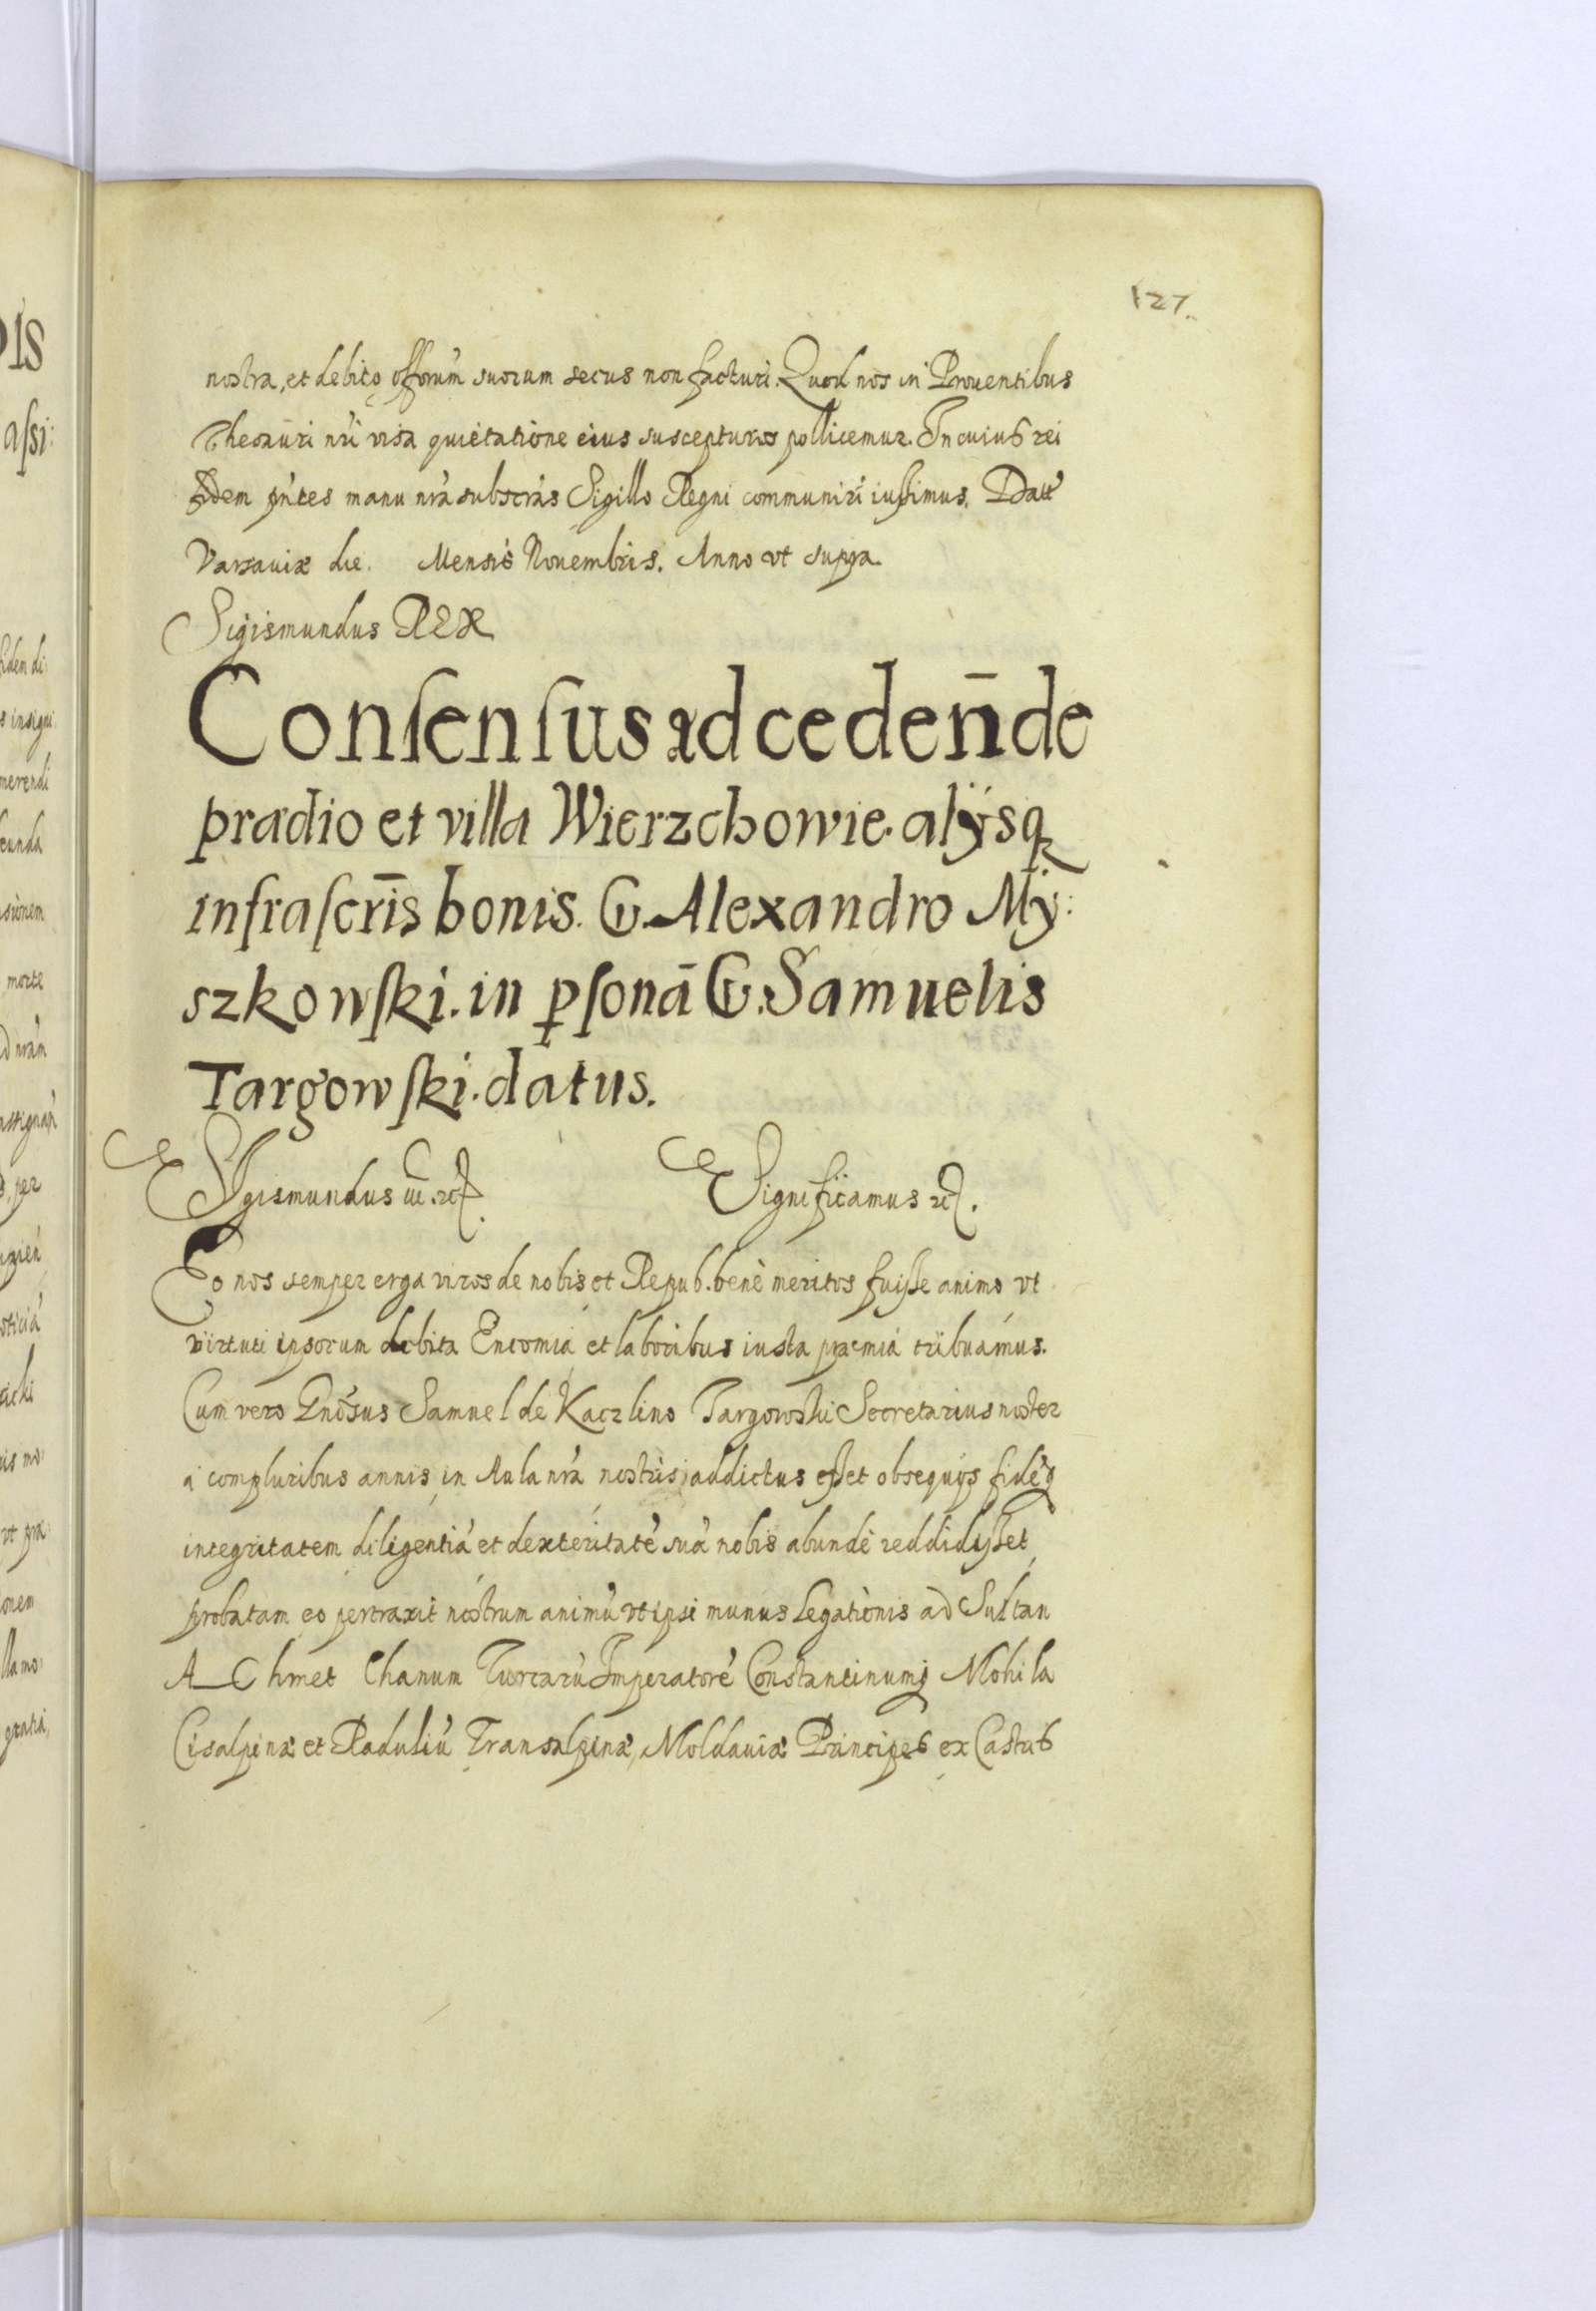 127.
nostra, et debito offorũm suorum secus non facturi. Quod nos in Prouentibus
Thesauri nri visa quietatione eius suscepturos pollicemur. In cuius rei
fidem pñtes manu nrã subscras Sigillo Regni communiri iussimus. Datt
Varsauiæ die. Mensis Nouembris. Anno vt supra.
Sigismundus REX
Conſenſus ad cedeñ de
prædio et villa Wierzchowie. alÿsq
infraſcrīs bonis. G. Alexandro Mÿ:
szkowſki. in pſonā G. Samuelis
Targowſki. datus.
SIgismundus iii. etc. Significamus etc.
Eo nos semper erga viros de nobis et Repub. benè meritos fuisse animo vt
virtuti ipsorum debita Encomia et laboribus iusta præmia tribuamus.
Cum vero Gnõsus Samuel de Kaczlino Targowski Secretarius noster
a compluribus annis in Aula nrã nostris addictus esset obsequijs fidẽq
integritatem diligentiã et dexteritatẽ suã nobis abundè reddidisset
probatam eo pertraxit nostrum animũ vt ipsi munus Legationis ad Sultan
AChmet Chanum Turcarũ Imperatorẽ Constantinumq Mohila
Cisalpinæ et Raduliũ Transalpinæ, Moldauiæ Principes ex Castris